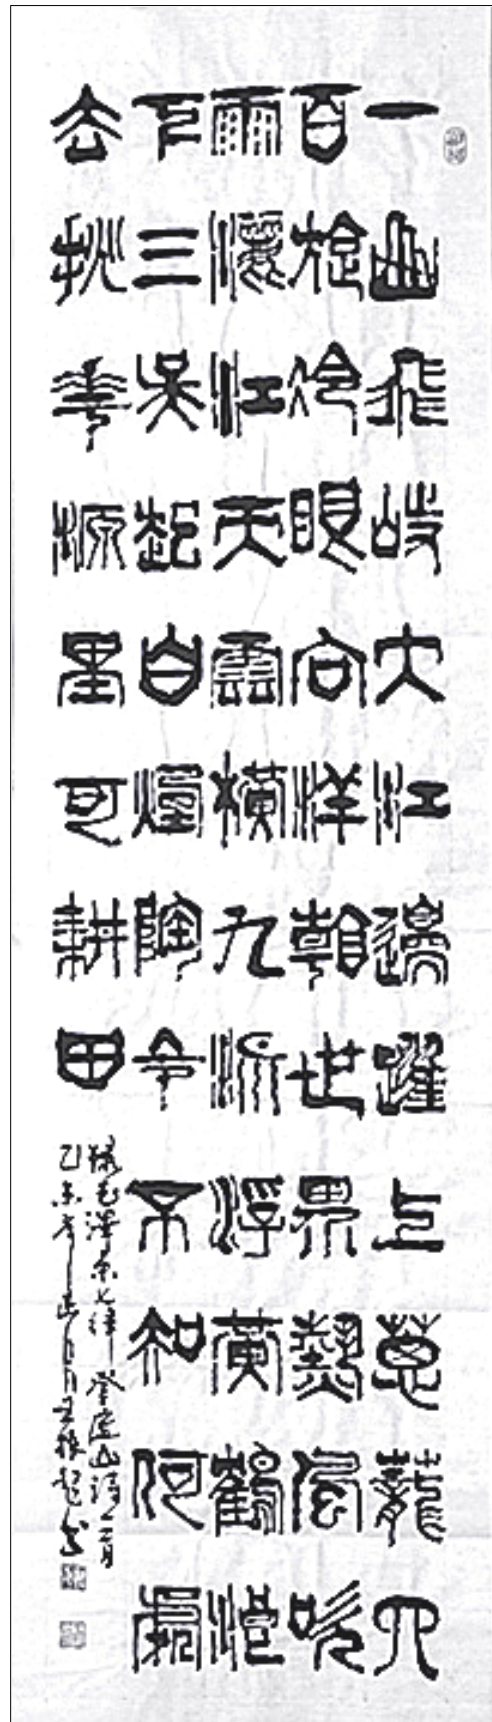 一山飛峙大江邊躍上蔥蘢四
百旋冷眼向洋看世界熱風吹
雨灑江天雲橫九派浮黃鶴浪
下三吳起白煙陶令不知何處
去桃花源里可耕田
録毛澤東七律登廬山詩一首
乙未年正月書